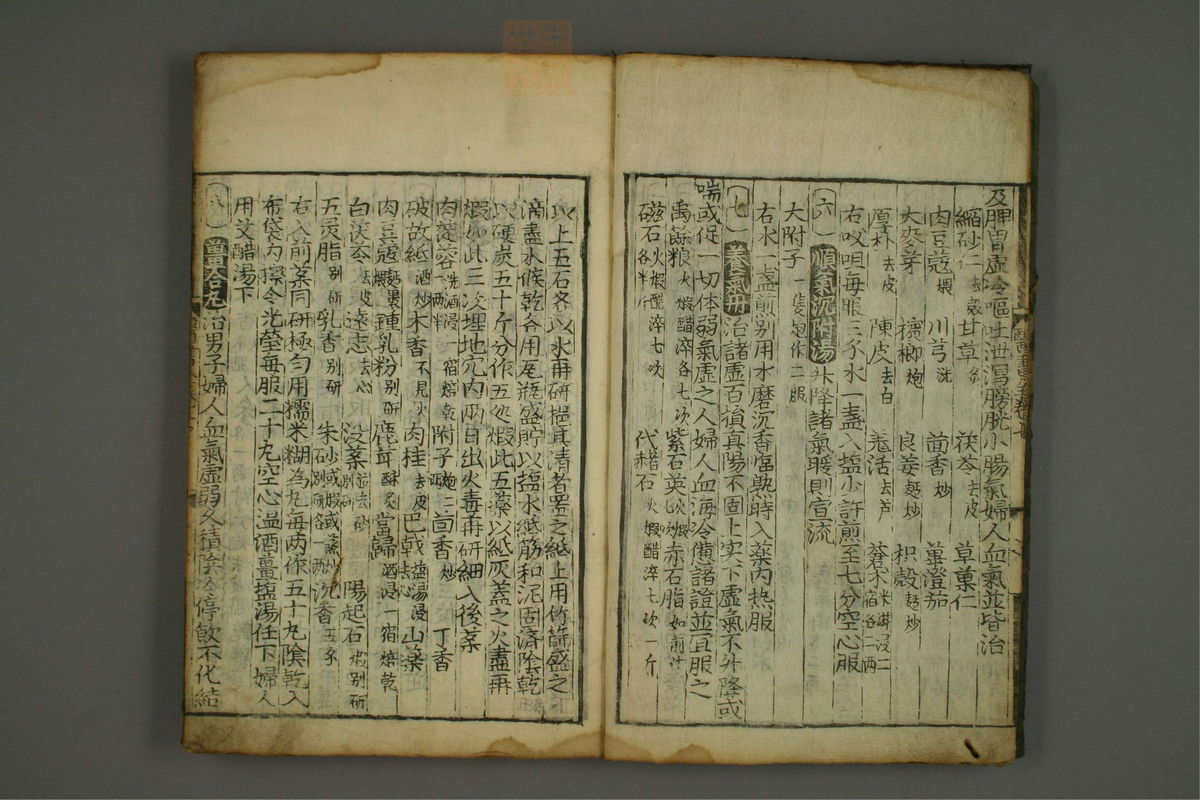 及脾胃虚冷嘔吐泄瀉膀胱小腸氣婦人血氣並皆治
縮砂仁去殼 甘草炙 茯苓去皮 草菓仁
肉豆蔻煨 川芎洗 茴香炒 蓽澄茄
大麥芽 檳榔炮 良姜麩炒 枳殼麩炒
厚朴去皮 陳皮去白 羗活去芦 蒼术米泔浸二宿各二两
右㕮咀每服三錢水一盞入塩少許煎至七分空心服
六 順氣沉附湯 升降諸氣暖則宣流
大附子一隻炮作二服
右水一盞煎别用水磨沉香臨熟時入藥内热服
七 養氣丹 治諸虚百損真陽不固上实下虚氣不升降或
喘或促一切体弱氣虚之人婦人血海冷憊諸證並宜服之
禹餘粮火煆醋淬各七次 紫石英火煆七次 赤石脂如前
磁石火煆醋淬七次各半斤 代赭石火煆醋淬七次一斤
以上五石各以水再研挹其清者置之紙上用竹篩盛之
滴盡水候乾各用瓦瓶盛貯以塩水紙筋和泥固濟陰乾
以硬炭五十斤分作五處煆此五藥以紙灰盖之火盡再
煆如此三次埋地穴内两日出火毒再研細入後藥
肉蓯蓉洗酒浸一宿焙乾 附子炮二两 茴香炒 丁香
破故紙酒炒 木香不見火 肉桂去皮 巴戟塩湯浸去心 山藥
肉豆蔻麵裹煨 鍾乳粉别研 鹿茸酥炙 當歸酒浸一宿焙乾
白茯苓去皮 遠志去心 没藥别研 陽起石煆别研
五灵脂别研 乳香别研 朱砂或煆或蒸炒别研各一两 沉香
右入前藥同研極匀用糯米糊為丸每两作五十丸陰乾入
布袋内擦令光瑩每服二十丸空心温酒薑塩湯任下婦人
用艾醋湯下
八 當歸丸 治男子婦人血氣虚弱久積陰冷停飲不化結